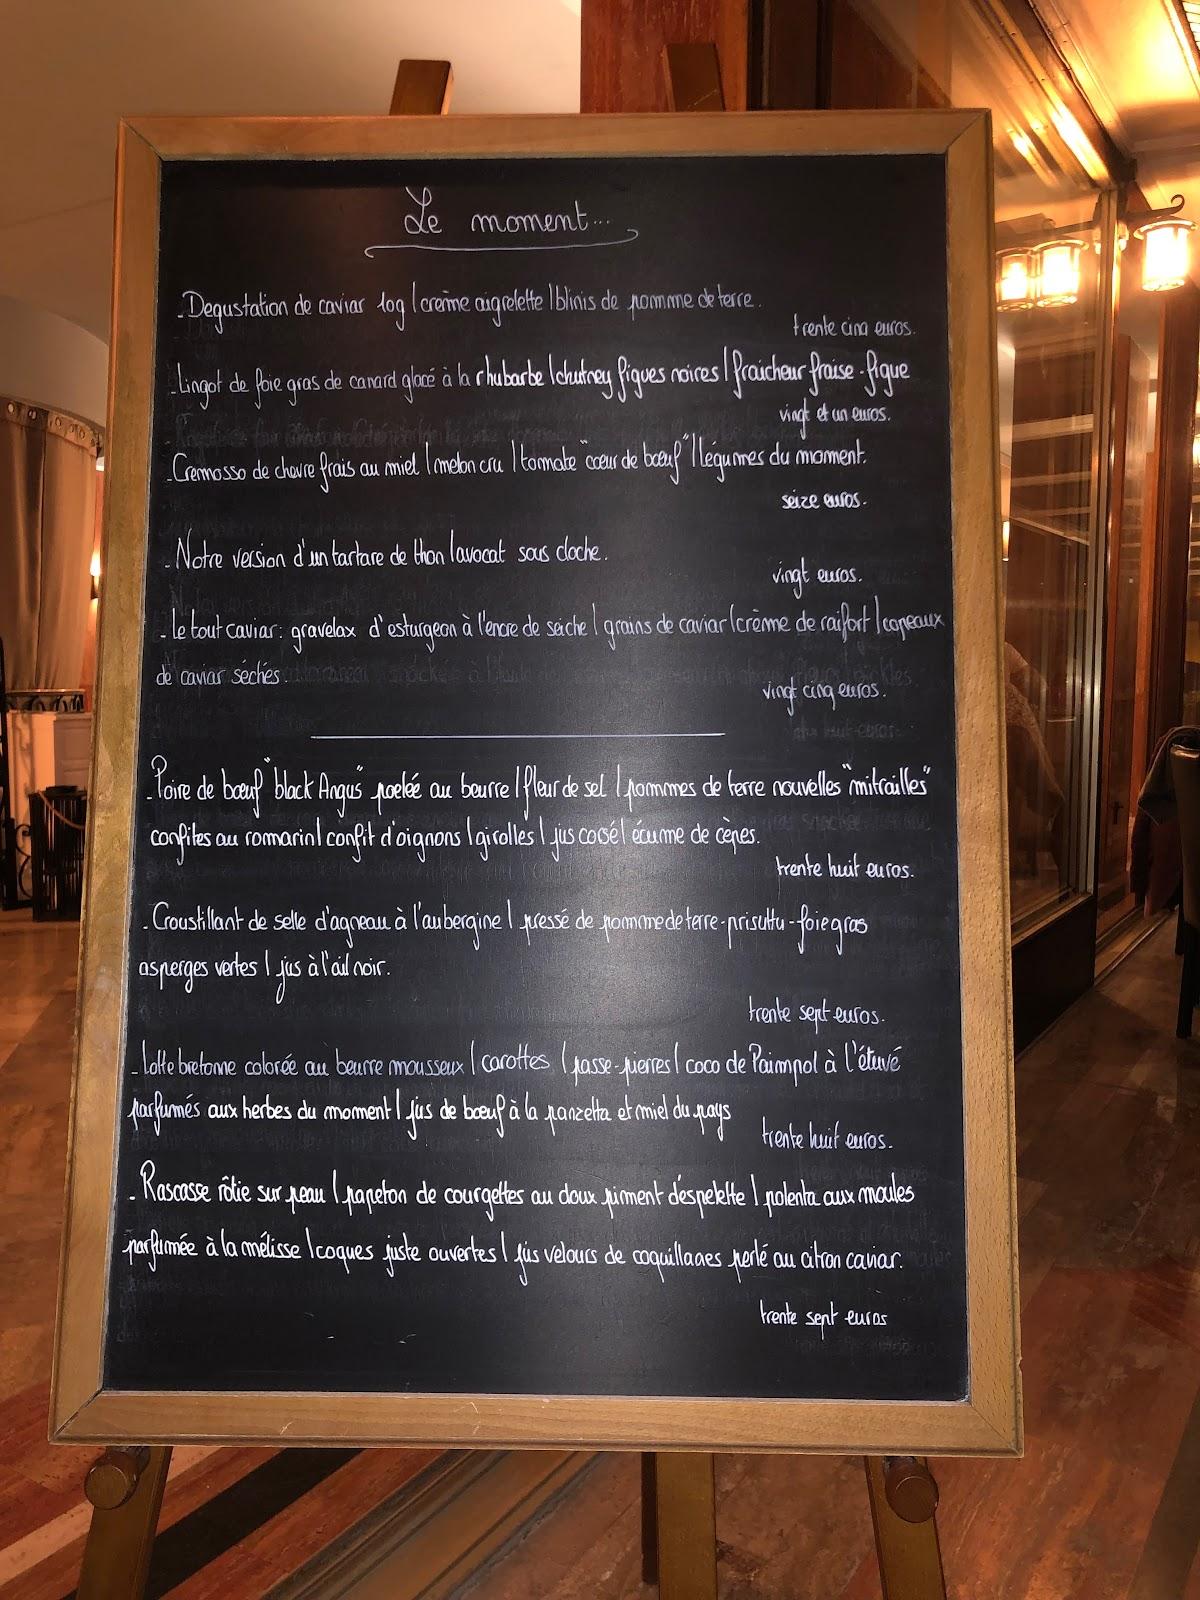 Le moment...
- Degustation de caviar 10g | crème aigrelette | blinis de pomme de terre.
trente cinq euros.
- Lingot de foie gras de canard glacé à la rhubarbe | chutney figues noires | fraicheur fraise - figue
vingt et un euros.
- Cremosso de chevre frais au miel | melon cru | tomate "cœur de bœuf" | légumes du moment.
seize euros.
- Notre version d'un tartare de thon | avocat sous cloche.
vingt euros.
- Le tout caviar: gravelax d'esturgeon à l'encre de seiche | grains de caviar | crème de raifort | copeaux
de caviar séchés.
vingt cinq euros.
- Poire de bœuf "black Angus" poelée au beurre | fleur de sel | pommes de terre nouvelles "mitrailles"
confites au romarin | confit d'oignons | girolles | jus corsé | écume de cèpes.
trente huit euros.
- Croustillant de selle d'agneau à l'aubergine | pressé de pomme de terre - prisuttu - foie gras
asperges vertes | jus à l'ail noir.
trente sept euros.
- Lotte bretonne colorée au beurre mousseux | carottes | passe-pierres | coco de Paimpol à l'étuvé
parfumés aux herbes du moment | jus de bœuf à la panzetta et miel du pays
trente huit euros.
- Rascasse rôtie sur peau | papeton de courgettes au doux piment d'espelette | polenta aux moules
parfumée à la mélisse | coques juste ouvertes | jus velours de coquillages perlé au citron caviar.
trente sept euros